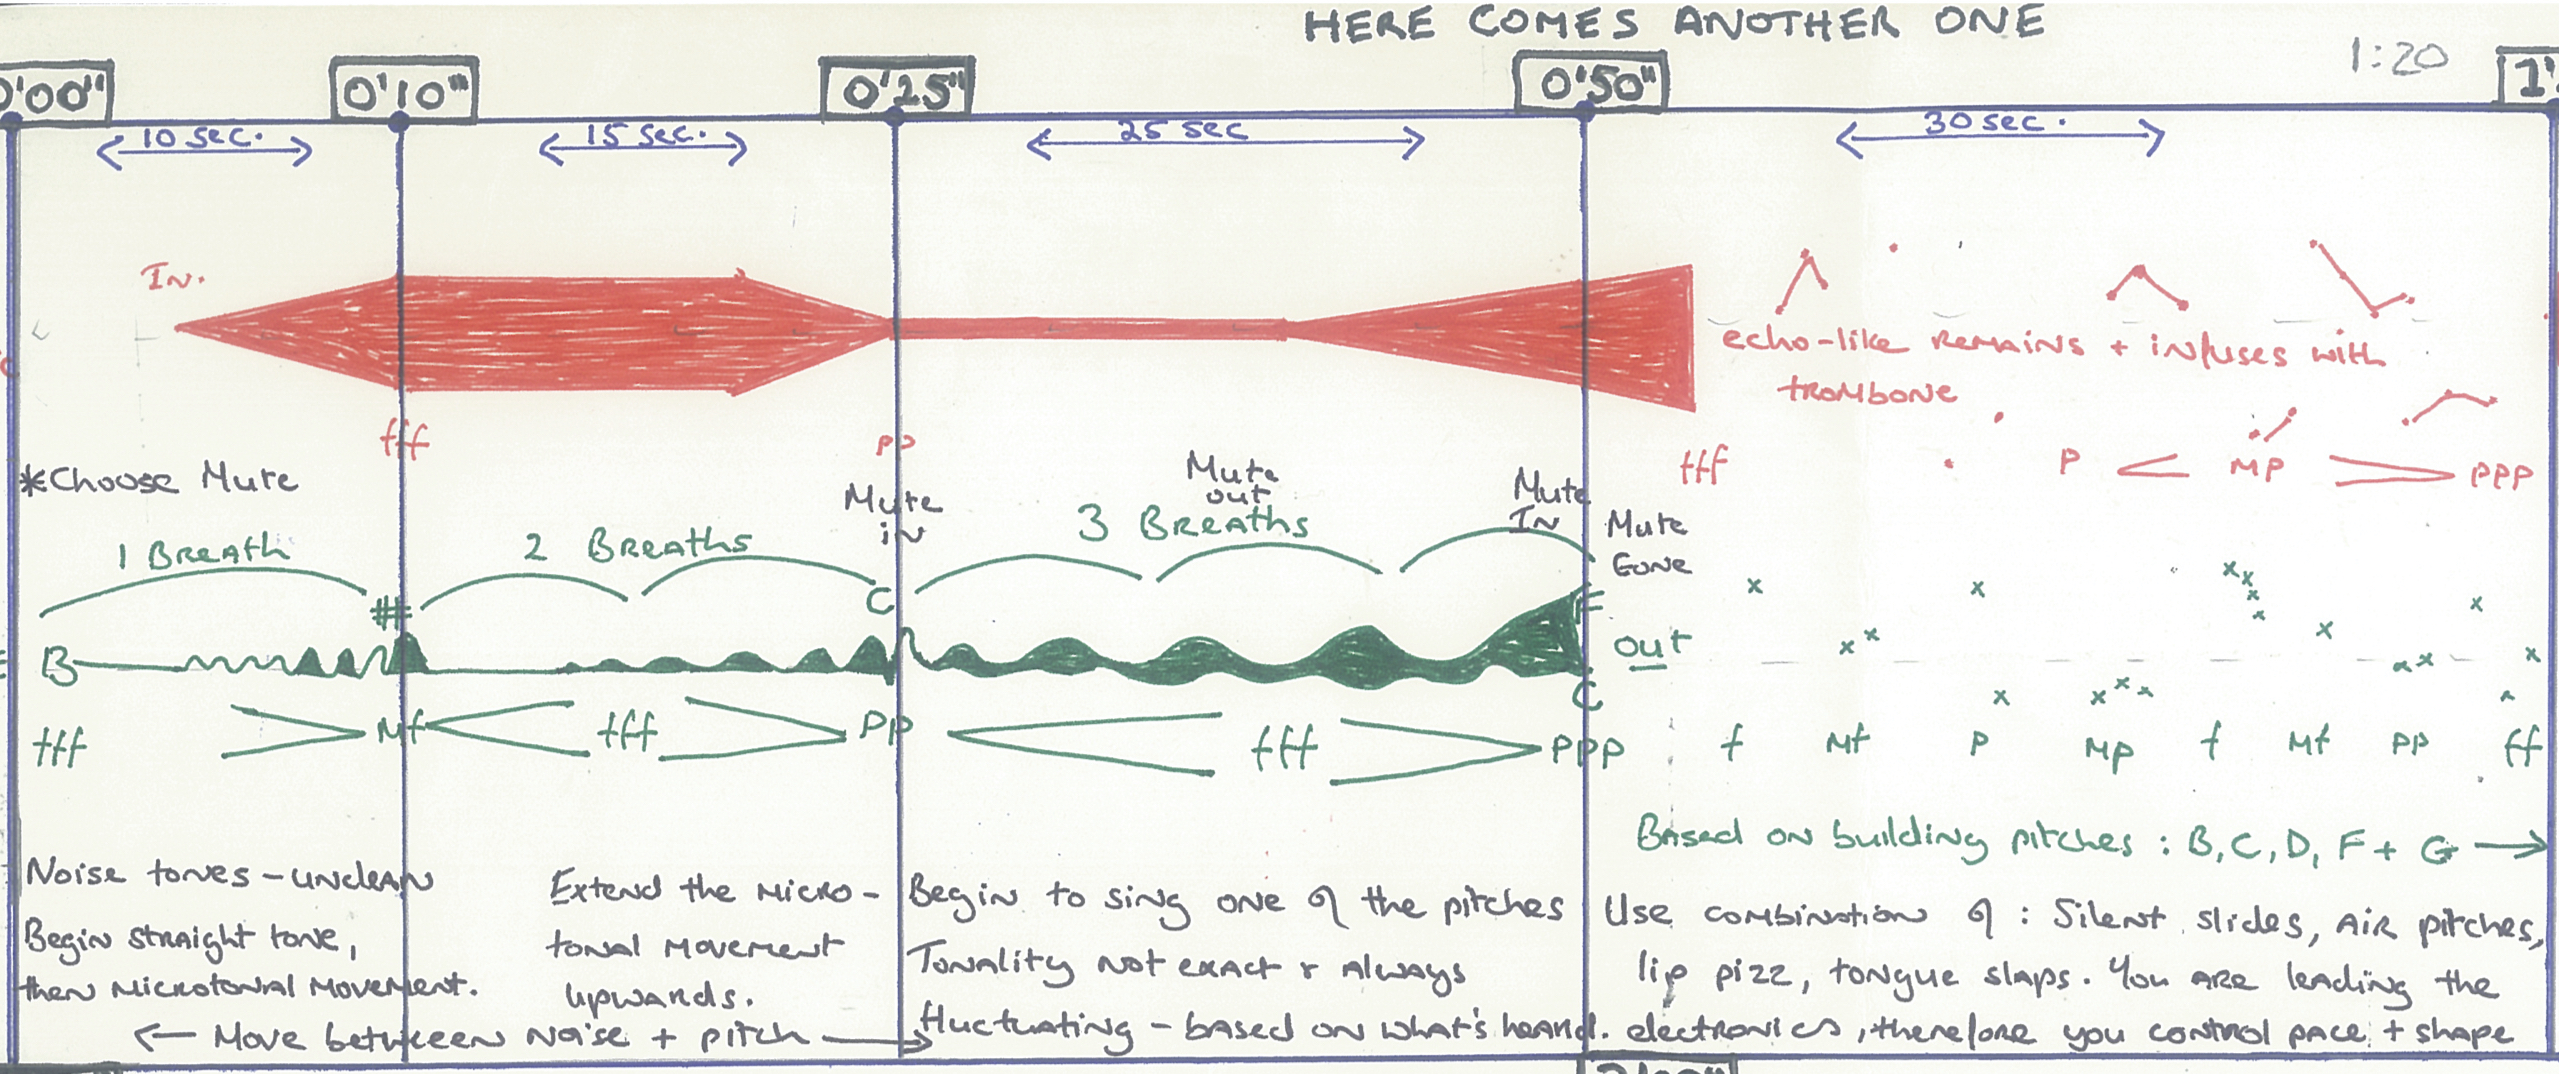 HERE COMES ANOTHER ONE
1:20
0'00"
0'10"
0'25"
0'50"
10 sec.
15 sec.
25 sec
30 sec.
In.
echo-like remains + infuses with
trombone
fff
pp
fff
P
MP
PPP
*Choose Mute
Mute
in
Mute
out
Mute
In
Mute
Gone
1 Breath
2 Breaths
3 Breaths
B
#
C
F
C
out
fff
Mf
fff
PP
fff
PPP
f
Mf
P
MP
f
Mf
PP
ff
Based on building pitches : B, C, D, F + G
Noise tones - unclean
Begin straight tone,
then Microtonal Movement.
Extend the Micro-
tonal Movement
upwards.
Move between Noise + pitch
Begin to sing one of the pitches
Tonality not exact & always
fluctuating - based on what's heard.
Use combination of : Silent slides, air pitches,
lip pizz, tongue slaps. You are leading the
electronics, therefore you control pace + shape